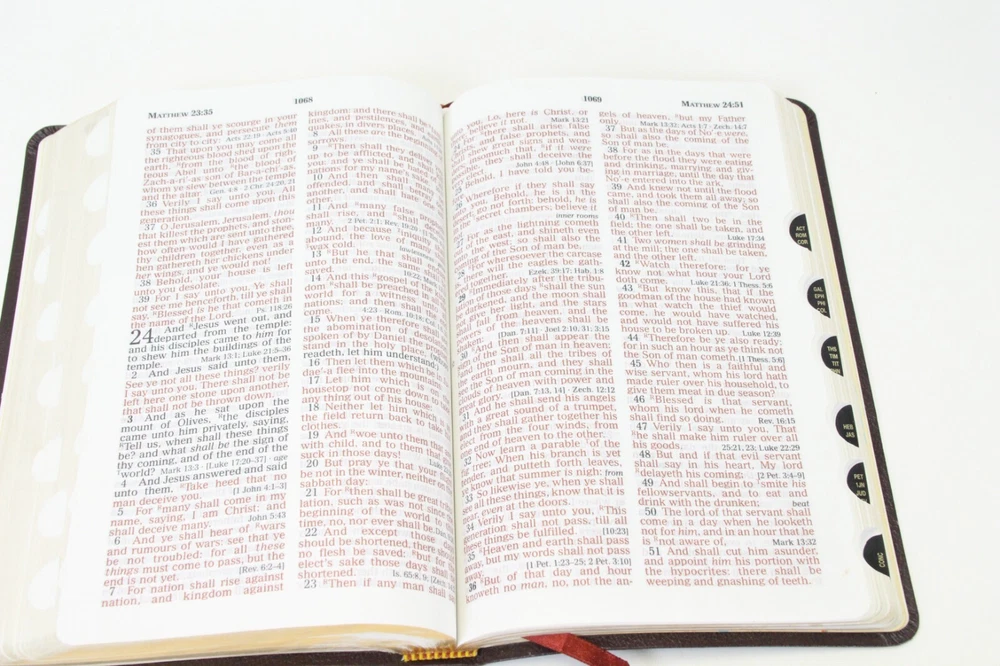 MATTHEW 23:35
1068
of them shall ye scourge in your
synagogues, and persecute them
from city to city: Acts 22:19 · Acts 5:40
35 That upon you may come all
the righteous blood shed upon the
earth, from the blood of right-
teous Abel unto the blood of
Zach-a-ri'-as son of Bar-a-chi'-as,
whom ye slew between the temple
and the altar. Gen. 4:8 · 2 Chr 24:20, 21
36 Verily I say unto you, All
these things shall come upon this
generation.
37 O Jerusalem, Jerusalem, thou
that killest the prophets, and ston-
est them which are sent unto thee,
how often would I have gathered
thy children together, even as a
hen gathereth her chickens under
her wings, and ye would not!
38 Behold, your house is left
unto you desolate.
39 For I say unto you, Ye shall
not see me henceforth, till ye shall
say, Blessed is he that cometh in
the name of the Lord. Ps. 118:26
24 And Jesus went out, and
departed from the temple:
and his disciples came to him for
to shew him the buildings of the
temple. Mark 13:1; Luke 21:5-36
2 And Jesus said unto them,
See ye not all these things? verily
I say unto you, There shall not be
left here one stone upon another,
that shall not be thrown down.
3 And as he sat upon the
mount of Olives, the disciples
came unto him privately, saying,
Tell us, when shall these things
be? and what shall be the sign of
thy coming, and of the end of the
world? Mark 13:3 · [Luke 17:20-37] · age
4 And Jesus answered and said
unto them, Take heed that no
man deceive you. [1 John 4:1-3]
5 For many shall come in my
name, saying, I am Christ; and
shall deceive many. John 5:43
6 And ye shall hear of wars
and rumours of wars: see that ye
be not troubled: for all these
things must come to pass, but the
end is not yet. [Rev. 6:2-4]
7 For nation shall rise against
nation, and kingdom against
kingdom: and there shall be
ines, and pestilences, and
quakes, in divers places.
8 All these are the
sorrows.
9 Then shall they
up to be afflicted, and shall
you: and ye shall be
nations for my name's
10 And then shall many
offended, and shall betray
another, and shall hate one
other.
11 And many false
shall rise, and shall
2 Pet. 2:1; Rev. 19:20
12 And because
abound, the love of many
wax cold.
13 But he that shall
unto the end, the same
saved.
14 And this gospel of the
dom shall be preached in
world for a witness
nations; and then shall
4:23 · Rom. 10:18
15 When ye therefore shall
the abomination of
spoken of by Daniel the
stand in the holy place,
readeth, let him understand
16 Then let them which be
dae'-a flee into the mountains
17 Let him which is
housetop not come down to
any thing out of his house:
18 Neither let him which
the field return back to take
clothes.
19 And woe unto them that
with child, and to them that
suck in those days!
20 But pray ye that your
be not in the winter, neither
sabbath day:
21 For then shall be great
lation, such as was not since
beginning of the world to
time, no, nor ever shall be.
22 And except those
should be shortened, there
no flesh be saved: but for
elect's sake those days shall
shortened. Is. 65:8, 9; [Zech.
23 Then if any man shall
1069
MATTHEW 24:51
you, Lo, here is Christ, or
believe it not. Mark 13:21
there shall arise false
and false prophets, and
shew great signs and won-
insomuch that, if it were
they shall deceive the
John 4:48 · [John 6:37]
Behold, I have told you be-
Wherefore if they shall say
you, Behold, he is in the
go not forth: behold, he is
secret chambers; believe it
inner rooms
For as the lightning cometh
of the east, and shineth even
the west; so shall also the
of the Son of man be.
For wheresoever the carcase
will the eagles be gath-
together. Ezek. 39:17; Hab. 1:8
immediately after the tribu-
of those days shall the sun
darkened, and the moon shall
give her light, and the stars
fall from heaven, and the
of the heavens shall be
[Dan. 7:11] · Joel 2:10, 31; 3:15
30 then shall appear the
of the Son of man in heaven:
shall all the tribes of
the earth mourn, and they shall
see the Son of man coming in the
of heaven with power and
great glory. [Dan. 7:13, 14] · Zech. 12:12
31 And he shall send his angels
with a great sound of a trumpet,
and they shall gather together his
elect from the four winds, from
one end of heaven to the other.
32 Now learn a parable of the
fig tree; When his branch is yet
tender, and putteth forth leaves,
ye know that summer is nigh: from
33 So likewise ye, when ye shall
see all these things, know that it is
near, even at the doors.
34 Verily I say unto you, This
generation shall not pass, till all
these things be fulfilled. [10:23]
35 Heaven and earth shall pass
away, but my words shall not pass
away. [1 Pet. 1:23-25; 2 Pet. 3:10]
36 But of that day and hour
knoweth no man, no, not the an-
gels of heaven, but my Father
only. Mark 13:32; Acts 1:7 · Zech. 14:7
37 But as the days of No'-e were,
so shall also the coming of the
Son of man be.
38 For as in the days that were
before the flood they were eating
and drinking, marrying and giv-
ing in marriage, until the day that
No'-e entered into the ark,
39 And knew not until the flood
came, and took them all away; so
shall also the coming of the Son
of man be.
40 Then shall two be in the
field; the one shall be taken, and
the other left. Luke 17:34
41 Two women shall be grinding
at the mill; the one shall be taken,
and the other left.
42 Watch therefore: for ye
know not what hour your Lord
doth come. Luke 21:36; 1 Thess. 5:6
43 But know this, that if the
goodman of the house had known
in what watch the thief would
come, he would have watched,
and would not have suffered his
house to be broken up. Luke 12:39
44 Therefore be ye also ready:
for in such an hour as ye think not
the Son of man cometh. [1 Thess. 5:6]
45 Who then is a faithful and
wise servant, whom his lord hath
made ruler over his household, to
give them meat in due season?
46 Blessed is that servant,
whom his lord when he cometh
shall find so doing. Rev. 16:15
47 Verily I say unto you, That
he shall make him ruler over all
his goods. 25:21, 23; Luke 22:29
48 But and if that evil servant
shall say in his heart, My lord
delayeth his coming; [2 Pet. 3:4-9]
49 And shall begin to smite his
fellowservants, and to eat and
drink with the drunken; beat
50 The lord of that servant shall
come in a day when he looketh
not for him, and in an hour that he
is not aware of, Mark 13:32
51 And shall cut him asunder,
and appoint him his portion with
the hypocrites: there shall be
weeping and gnashing of teeth.
ACT
ROM
COR
GAL
EPH
PHI
COL
THS
TIM
TIT
HEB
JAS
PET
1JH
JUD
CONC